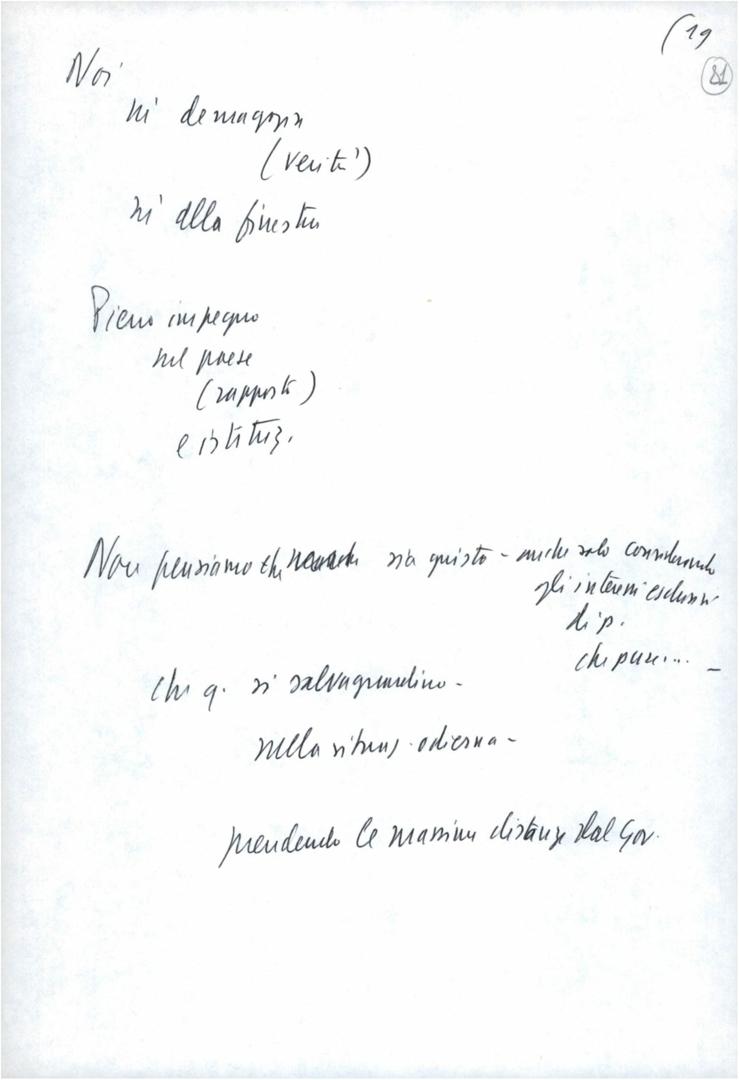 (19
81
Noi
né demagogia
(verità)
né alla finestra
Pieno impegno
nel paese
(rapporti)
e istituz.
Non pensiamo che sia questo - anche solo considerando
gli interessi esclusivi
di p.
che pure... -
che q. si salvaguardino -
nella situaz. odierna -
prendendo le massime distanze dal Gov.